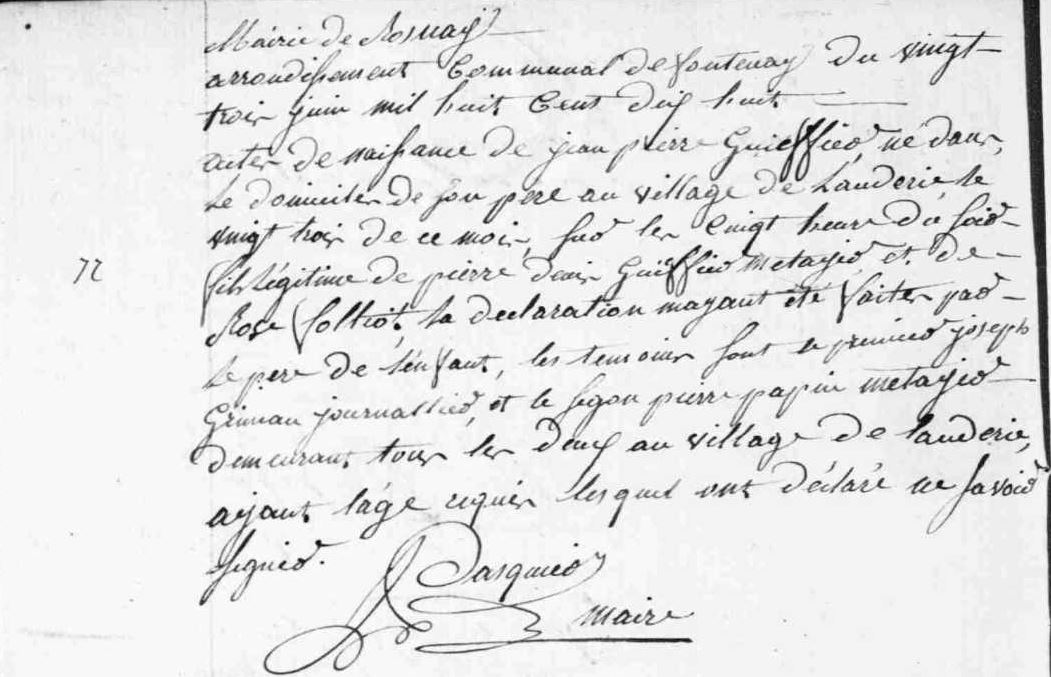 Mairie de Rosnay
arrondissement Communal de fontenay du vingt
trois juin mil huit Cent dix huit
acter de naissance de jean pierre Guieffier né dans
le domicile de son pere au village de Lauderie le
vingt trois de ce mois, sur les Cinqt heure du soir
72
fils légitime de pierre denis Guieffier metayié et de
Rose folliot. la declaration mayant été faiter par
le pere de l'enfant, les temoins sont le premier joseph
Grimau journallier, et le segon pierre papin metayié
demeurant tous les deux au village de lauderie,
ayant l'âge requis lesquel ont déclaré ne savoir
signer.
Pasquier
maire